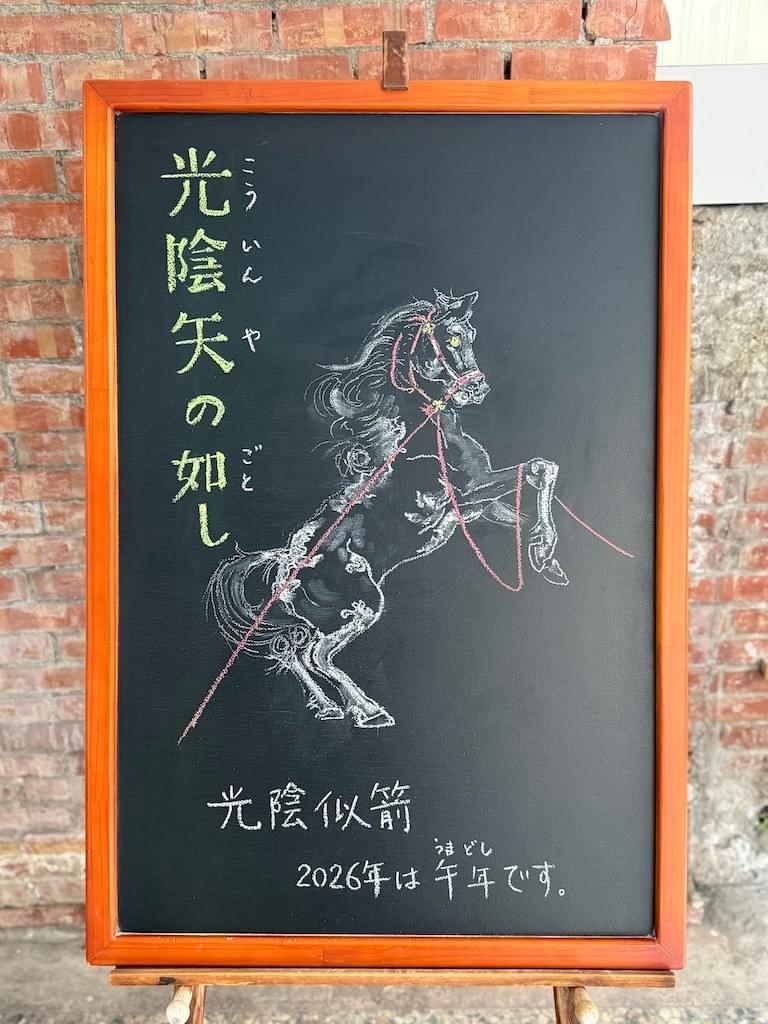 光陰矢の如し
こういん や ごと
光陰似箭
うまどし
2026年は午年です。